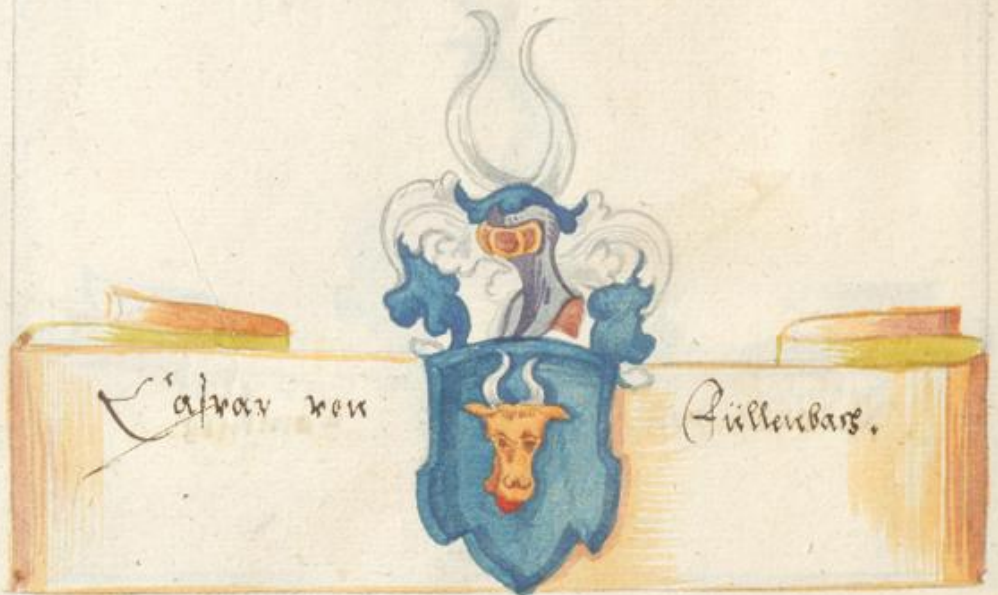 Caspar von Füllenbach.